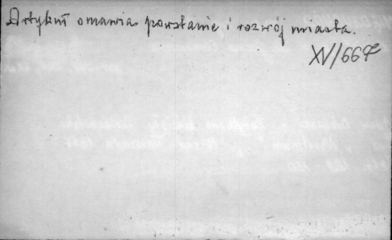 Artykuł omawia powstanie i rozwój miasta.
XV/667